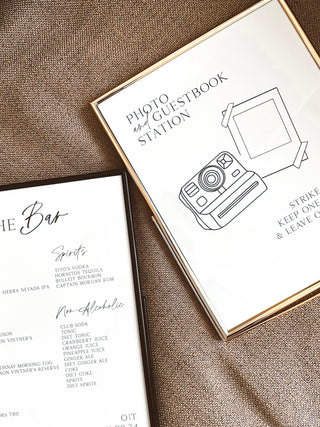 PHOTO
and GUESTBOOK
STATION
STRIKE
KEEP ONE
& LEAVE O
HE Bar
Spirits
TITO'S VODKA
HORNITOS TEQUILA
BULLEIT BOURBON
CAPTAIN MORGAN RUM
SIERRA NEVADA IPA
Non-Alcoholic
CLUB SODA
TONIC
DIET TONIC
CRANBERRY JUICE
ORANGE JUICE
PINEAPPLE JUICE
GINGER ALE
DIET GINGER ALE
COKE
DIET COKE
SPRITE
DIET SPRITE
SON VINTNER'S
ONNAY MORNING FOG
ON VINTNER'S RESERVE
RS TBD
OIT